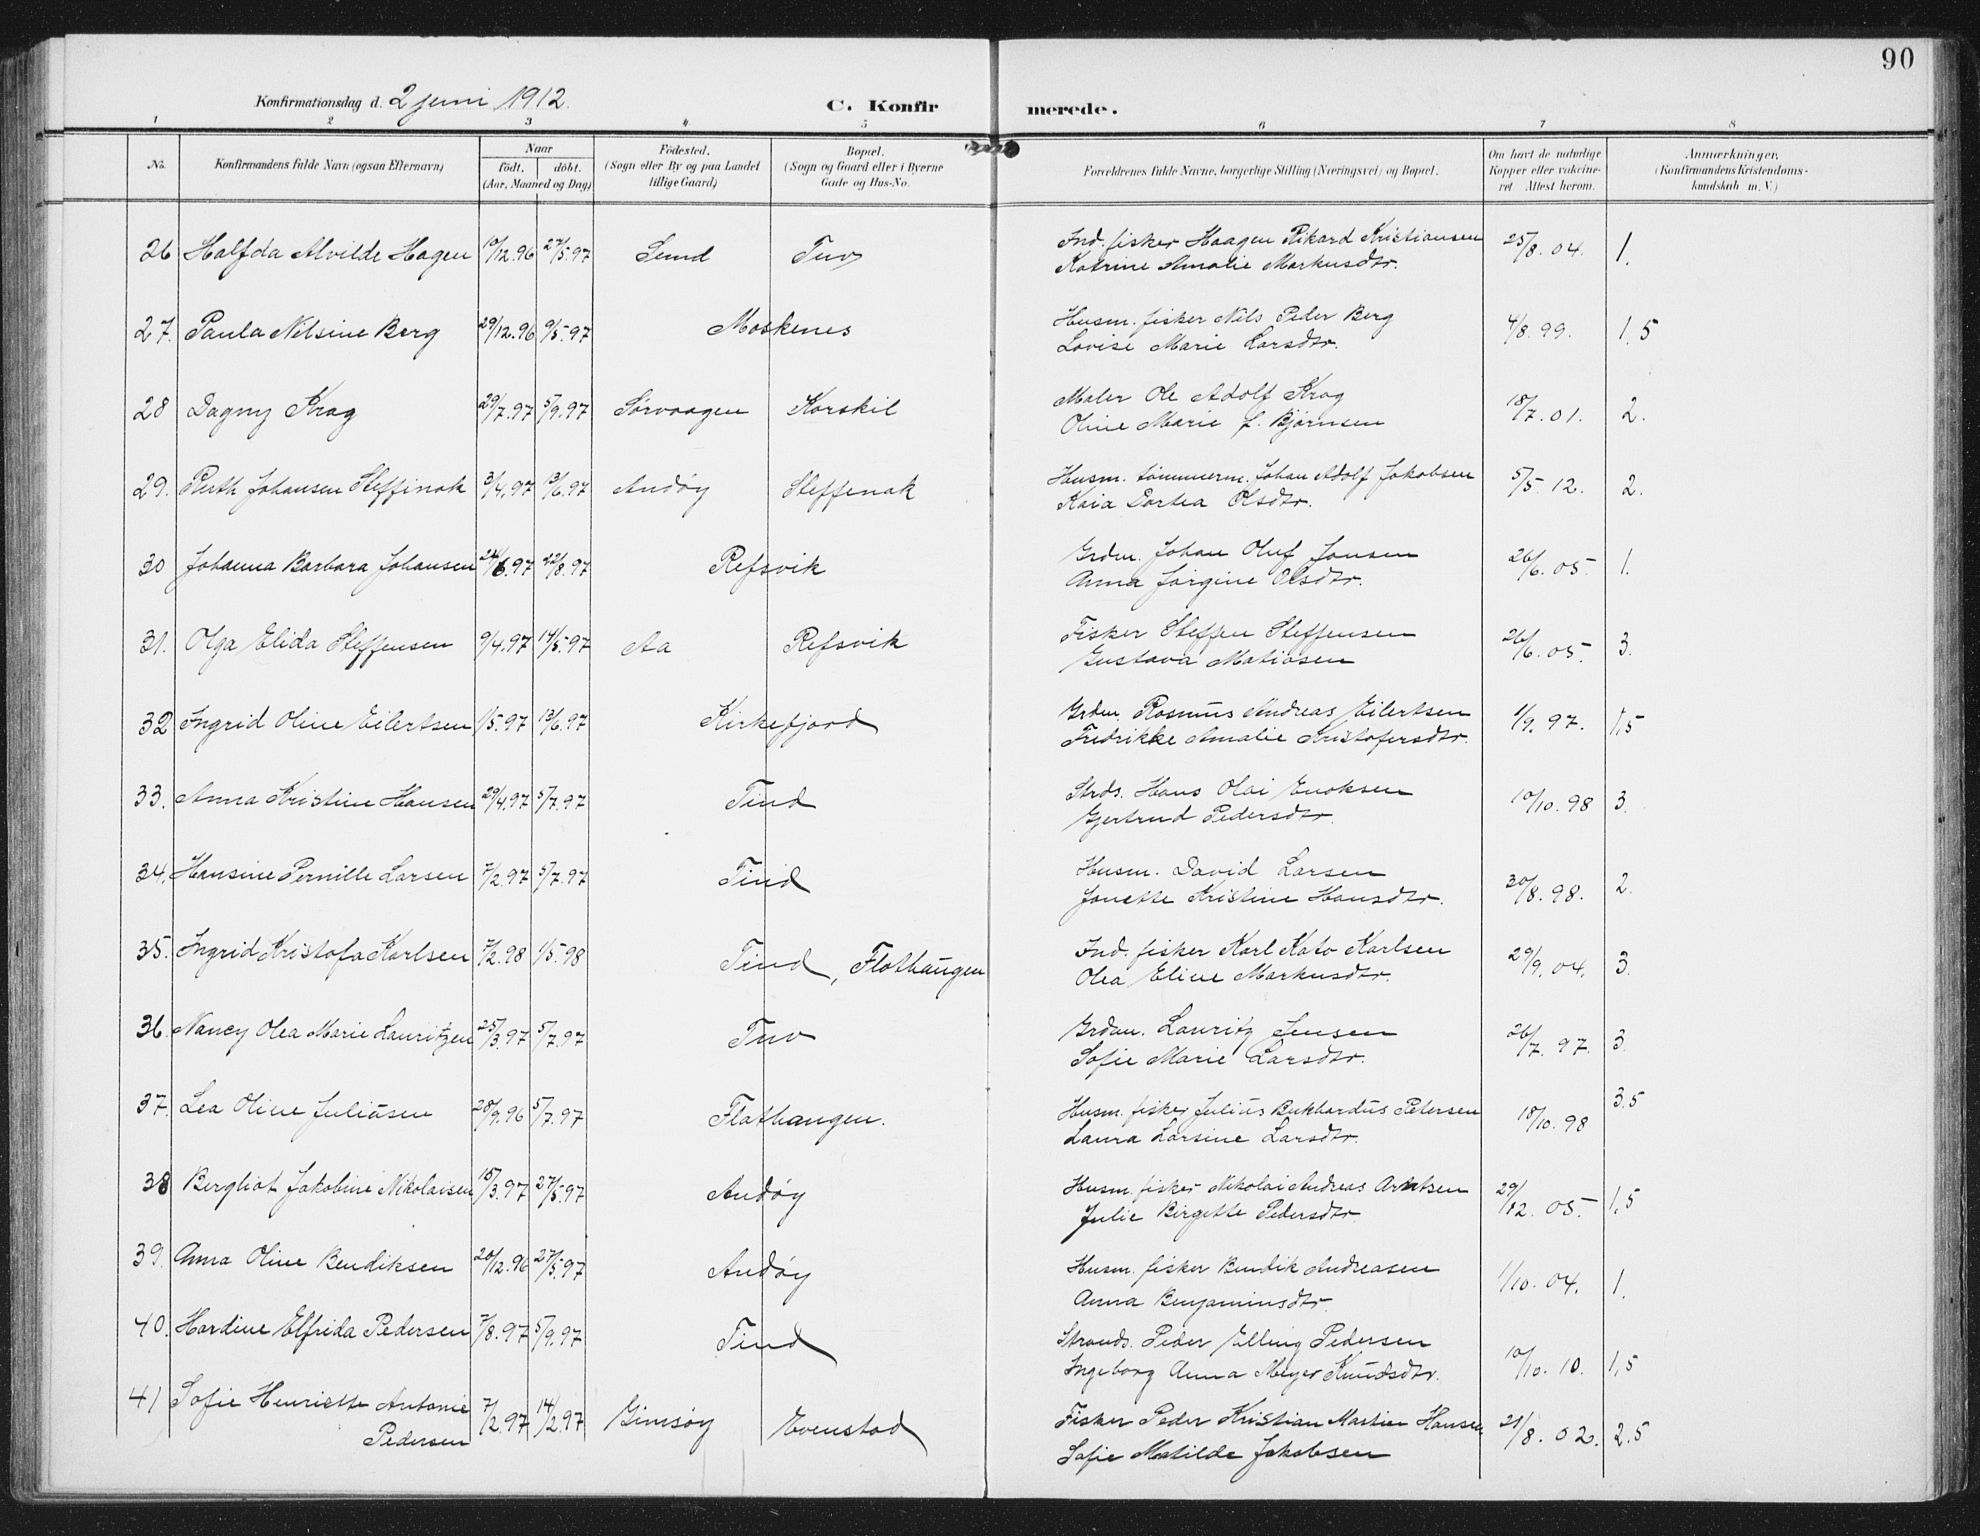 90
Konfirmationsdag d. 2 juni 1912.
C. Konfirmerede.
1 2 3 4 5 6 7 8
No. Konfirmandens fulde Navn (ogsaa Efternavn) Naar födt. döbt. (Aar, Maaned og Dag) Födested. (Sogn eller By og paa Landet tillige Gaard) Bopæl. (Sogn og Gaard eller i Byerne Gade og Hus-No. Forældrenes fulde Navne, borgerlige Stilling (Næringsvei) og Bopæl. Om havt de naturlige Kopper eller vakcineret Attest herom. Anmærkninger. (Konfirmandens Kristendomskundskab m. V.)
26 Halfda Alvilde Hagen 10/12.96 27/5.97 Sund Tuv Ind. fisker Haagen Rikard Kristiansen 25/8.04. 1.
Katrine Amalie Markusdtr.
27. Paula Nilsine Berg 29/12.96 9/5.97 Moskenes Husm. fisker Nils Peder Berg 4/8.99. 1,5
Lovise Marie Larsdtr.
28 Dagny Krag 29/7.97 5/9.97 Sørvaagen Korskil Maler Ole Adolf Krog 18/7.01. 2.
Oline Marie f. Bjørnsen
29. Ruth Johansen Steffinak 3/4.97 13/6.97 Andøy Steffenak Husm. tømmerm. Johan Adolf Jakobsen 5/5 12. 2.
Kaia Dortea Olsdtr.
30 Johanna Barbara Johansen 24/6.97 22/8.97 Refsvik Grdm. Johan Oluf Jonsen 26/6.05. 1.
Anna Jørgine Olsdtr.
31. Olga Elida Steffensen 9/4.97 14/5.97 Aa Refsvik Fisker Steffen Steffensen 26/6.05. 3.
Gustava Matiasen
32 Ingrid Oline Eilertsen 1/5.97 13/6.97 Kirkefjord Grdm. Rasmus Andreas Eilertsen 1/9.97. 1,5
Fredrikke Amalie Kristofersdtr.
33. Anna Kristine Hansen 29/4.97 5/7.97 Tind Strds. Hans Olai Enoksen 10/10.98 3.
Gjertrud Pedersdtr.
34. Hansine Pernille Larsen 7/2.97 5/7.97 Tind Husm. David Larsen 30/8.98. 2.
Jonette Kristine Hansdtr.
35. Ingrid Kristofa Karlsen 7/2.98 1/5.98 Tind, Flathaugen Ind. fisker Karl Kato Karlsen 29/9.04. 3.
Olea Eline Markusdtr.
36. Nancy Olea Marie Lauritzen 25/3.97 5/7.97 Tuv Grdm. Lauritz Jensen 26/7.97. 3.
Sofie Marie Larsdtr.
37. Lea Oline Juliusen 28/9.96 5/7.97 Flathaugen. Husm. fisker Julius Bukhardus Petersen 18/10.98 3.5
Laura Larsine Larsdtr.
38 Bergliot Jakobine Nikolaisen 15/3.97 27/5.97 Andøy Husm. fisker Nikolai Andreas Arntsen 29/12.05. 1,5
Julie Birgitte Pedersdtr.
39. Anna Oline Bendiksen 20/12.96 27/5.97 Andøy Husm. fisker Bendik Andreasen 1/10.04. 1.
Anna Benjaminsdtr.
40. Hardine Elfrida Pedersen 7/8.97 5/9.97 Tind Strands. Peder Elling Pedersen 10/10.10. 1,5
Ingeborg Anna Meyer Knudsdtr.
41 Sofie Henriette Antonie Pedersen 7/2.97 14/2.97 Gimsøy Evenstad Fisker Peder Kristian Martin Hansen 21/8.02. 2.5
Sofie Matilde Jakobsen